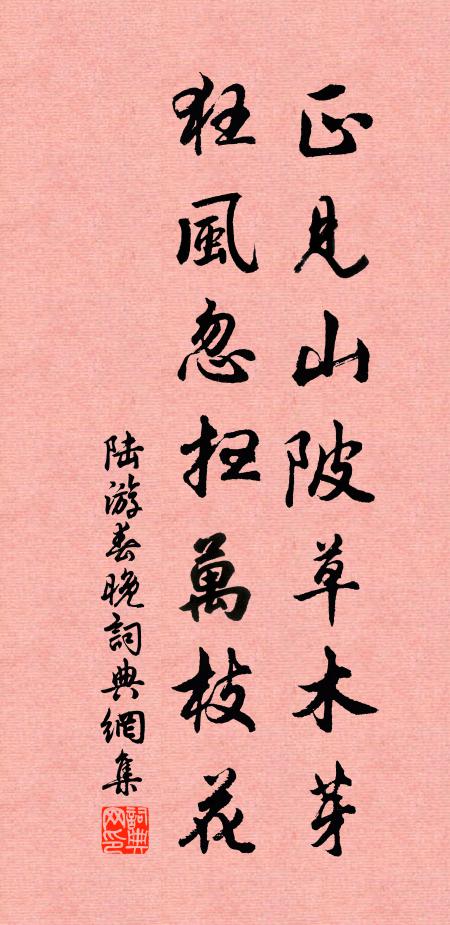 正見山陂草木芽
狂風忽扫萬枝花
陆游春晚詞典網集
詞典網印